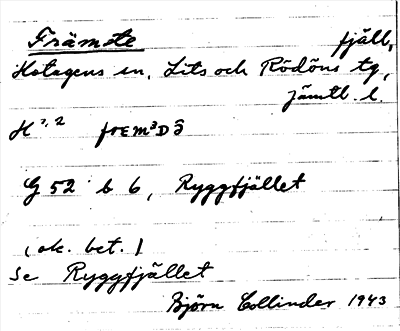 Främste fjäll,
Hotagens sn, Lits och Rödöns tg,
Jämtl. l.
G 52 b 6, Ryggfjället
(ok. bet.)
Se Ryggfjället
Björn Collinder 1943